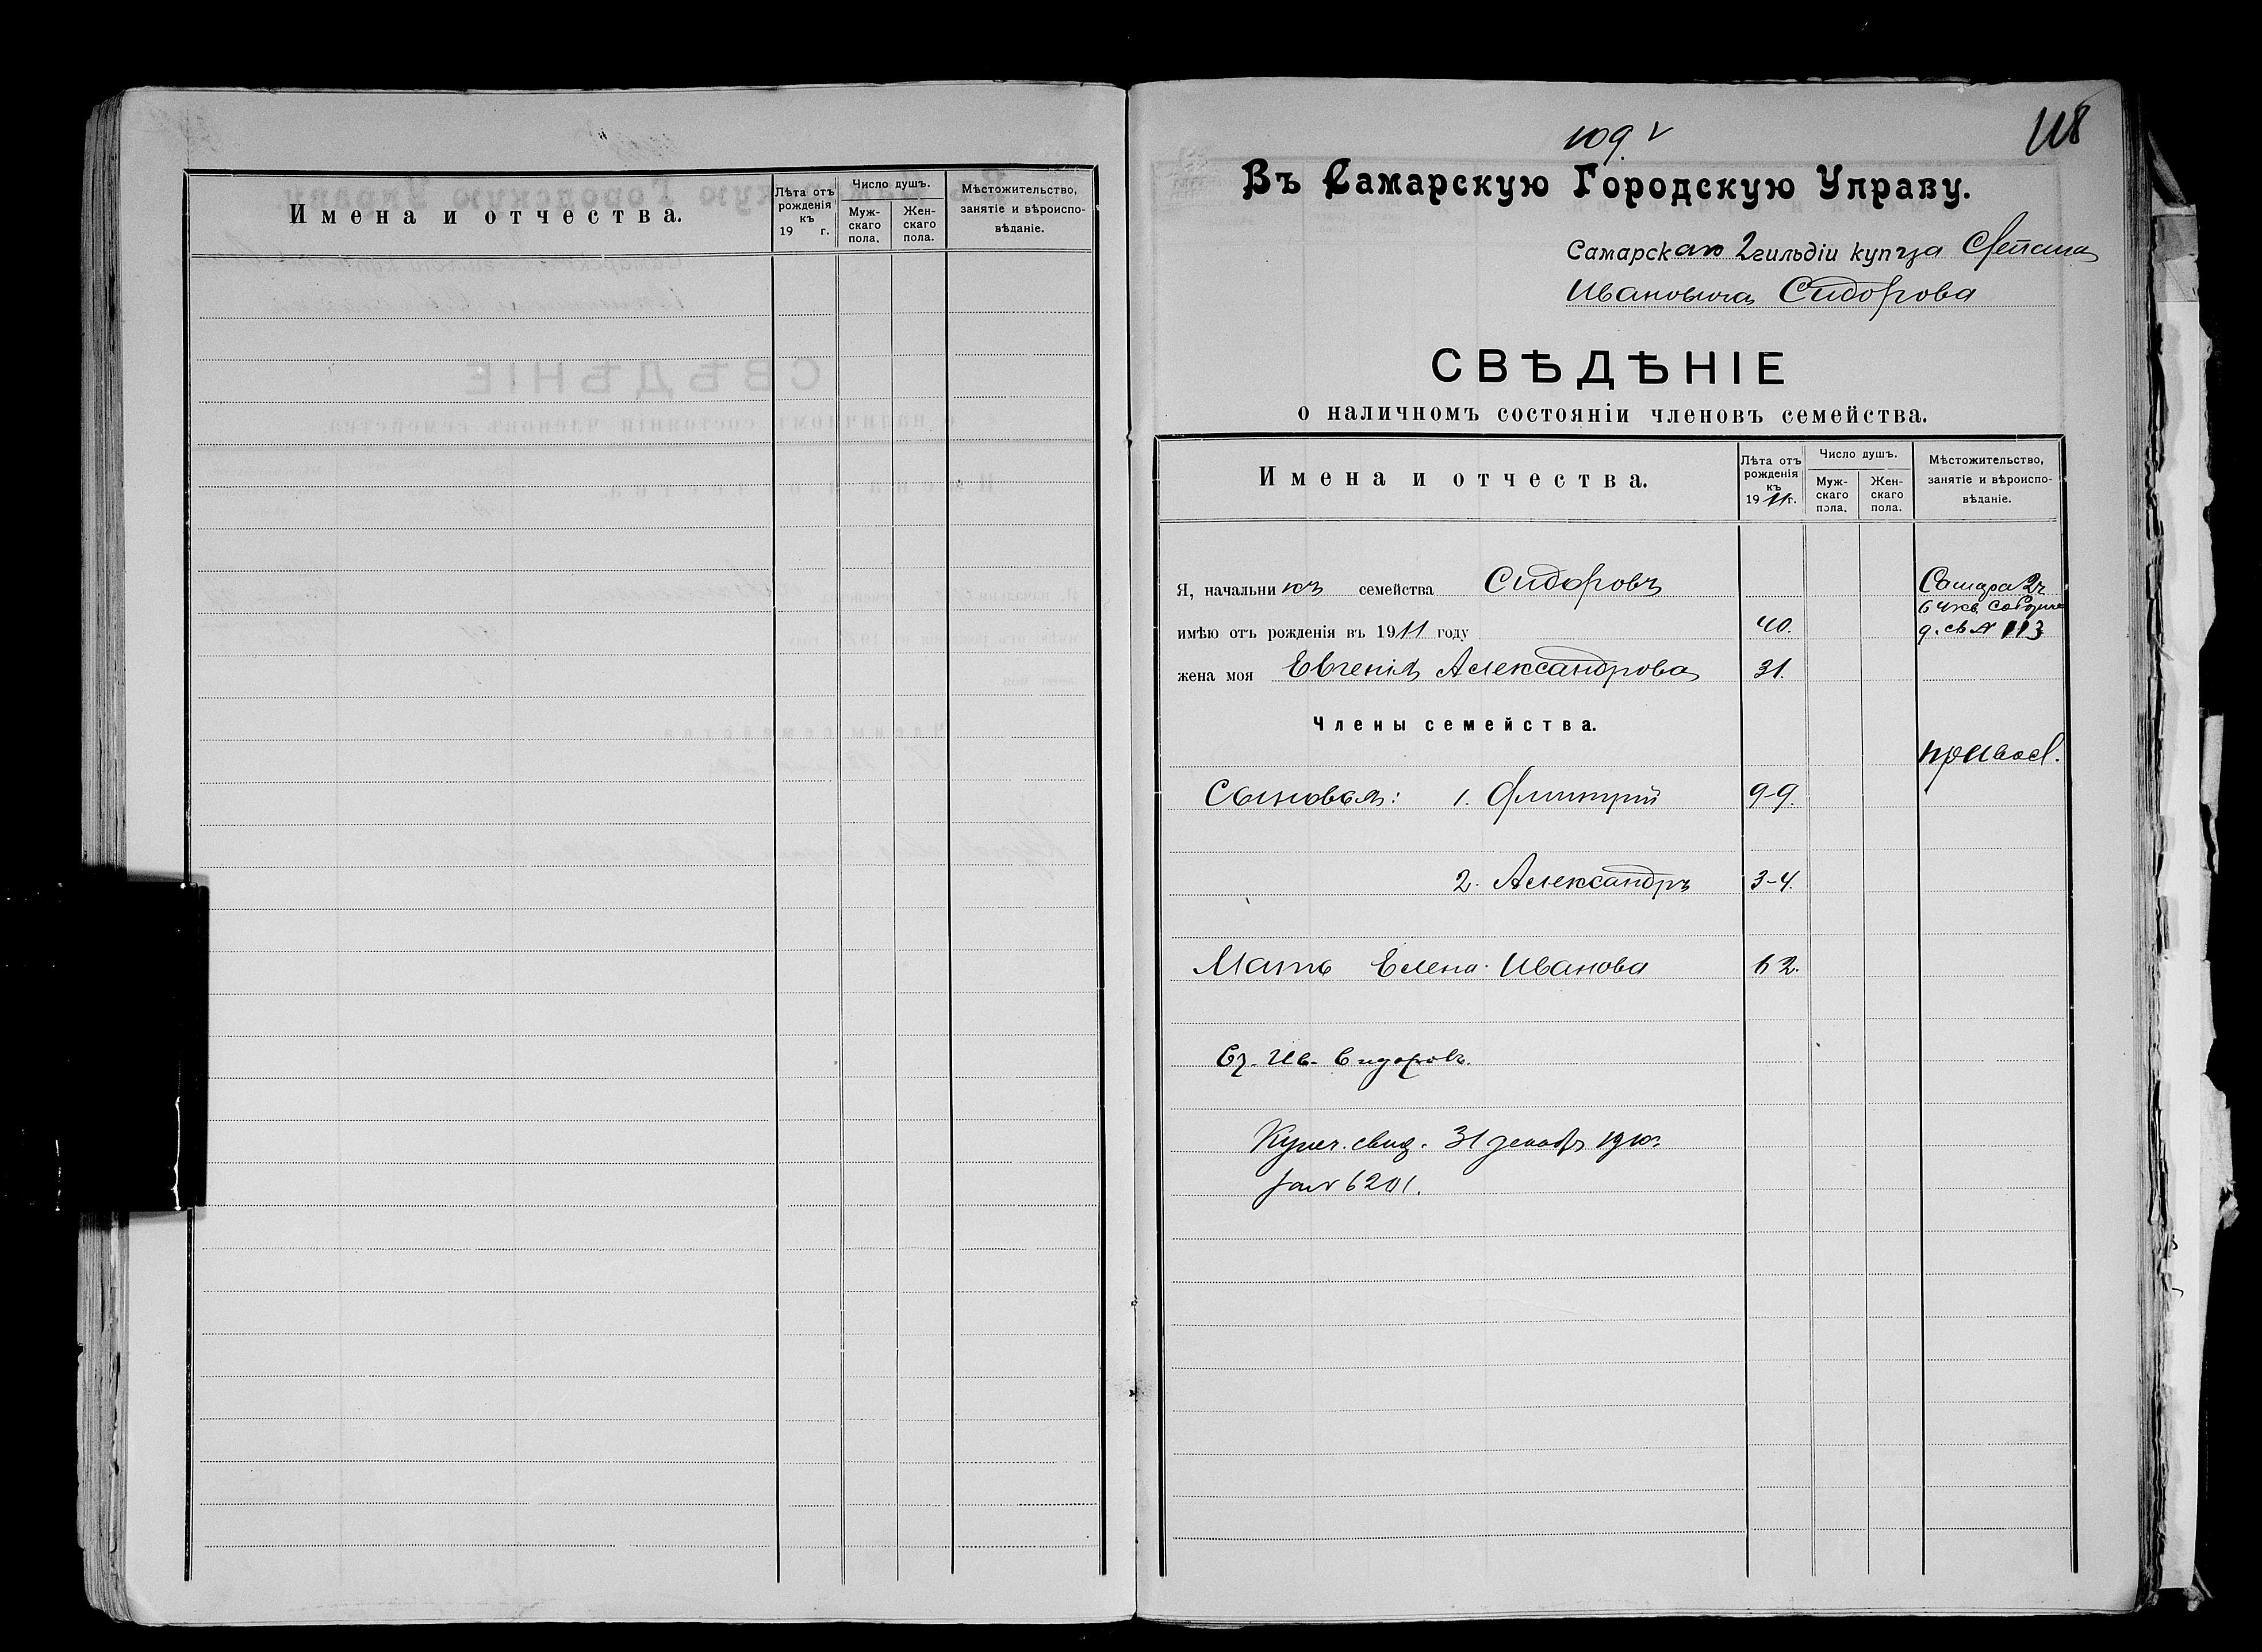 Имена и отчества.
Лѣта отъ рожденія къ 19 г.
Число душъ.
Мужскаго пола.
Женскаго пола.
Мѣстожительство, занятіе и вѣроисповѣданіе.
109. V
118
Въ Самарскую Городскую Управу.
Самарскаго 2 гильдіи купца Степана
Ивановича Сидорова
СВѢДѢНІЕ
о наличномъ состояніи членовъ семейства.
Имена и отчества.
Лѣта отъ рожденія къ 1911 г.
Число душъ.
Мужскаго пола.
Женскаго пола.
Мѣстожительство, занятіе и вѣроисповѣданіе.
Я, начальникъ семейства Сидоровъ
Самара 2ч
64 кв.
имѣю отъ рожденія въ 1911 году 40.
д. св № 113
жена моя Евгенія Александрова 31.
Члены семейства.
правосл.
Сыновья: 1. Дмитрій 9-9.
2. Александръ 3-4.
Мать Елена Иванова 62.
Ст. Ив. Сидоровъ.
Купеч. свид. 31 декабр 1910г.
за № 6201.